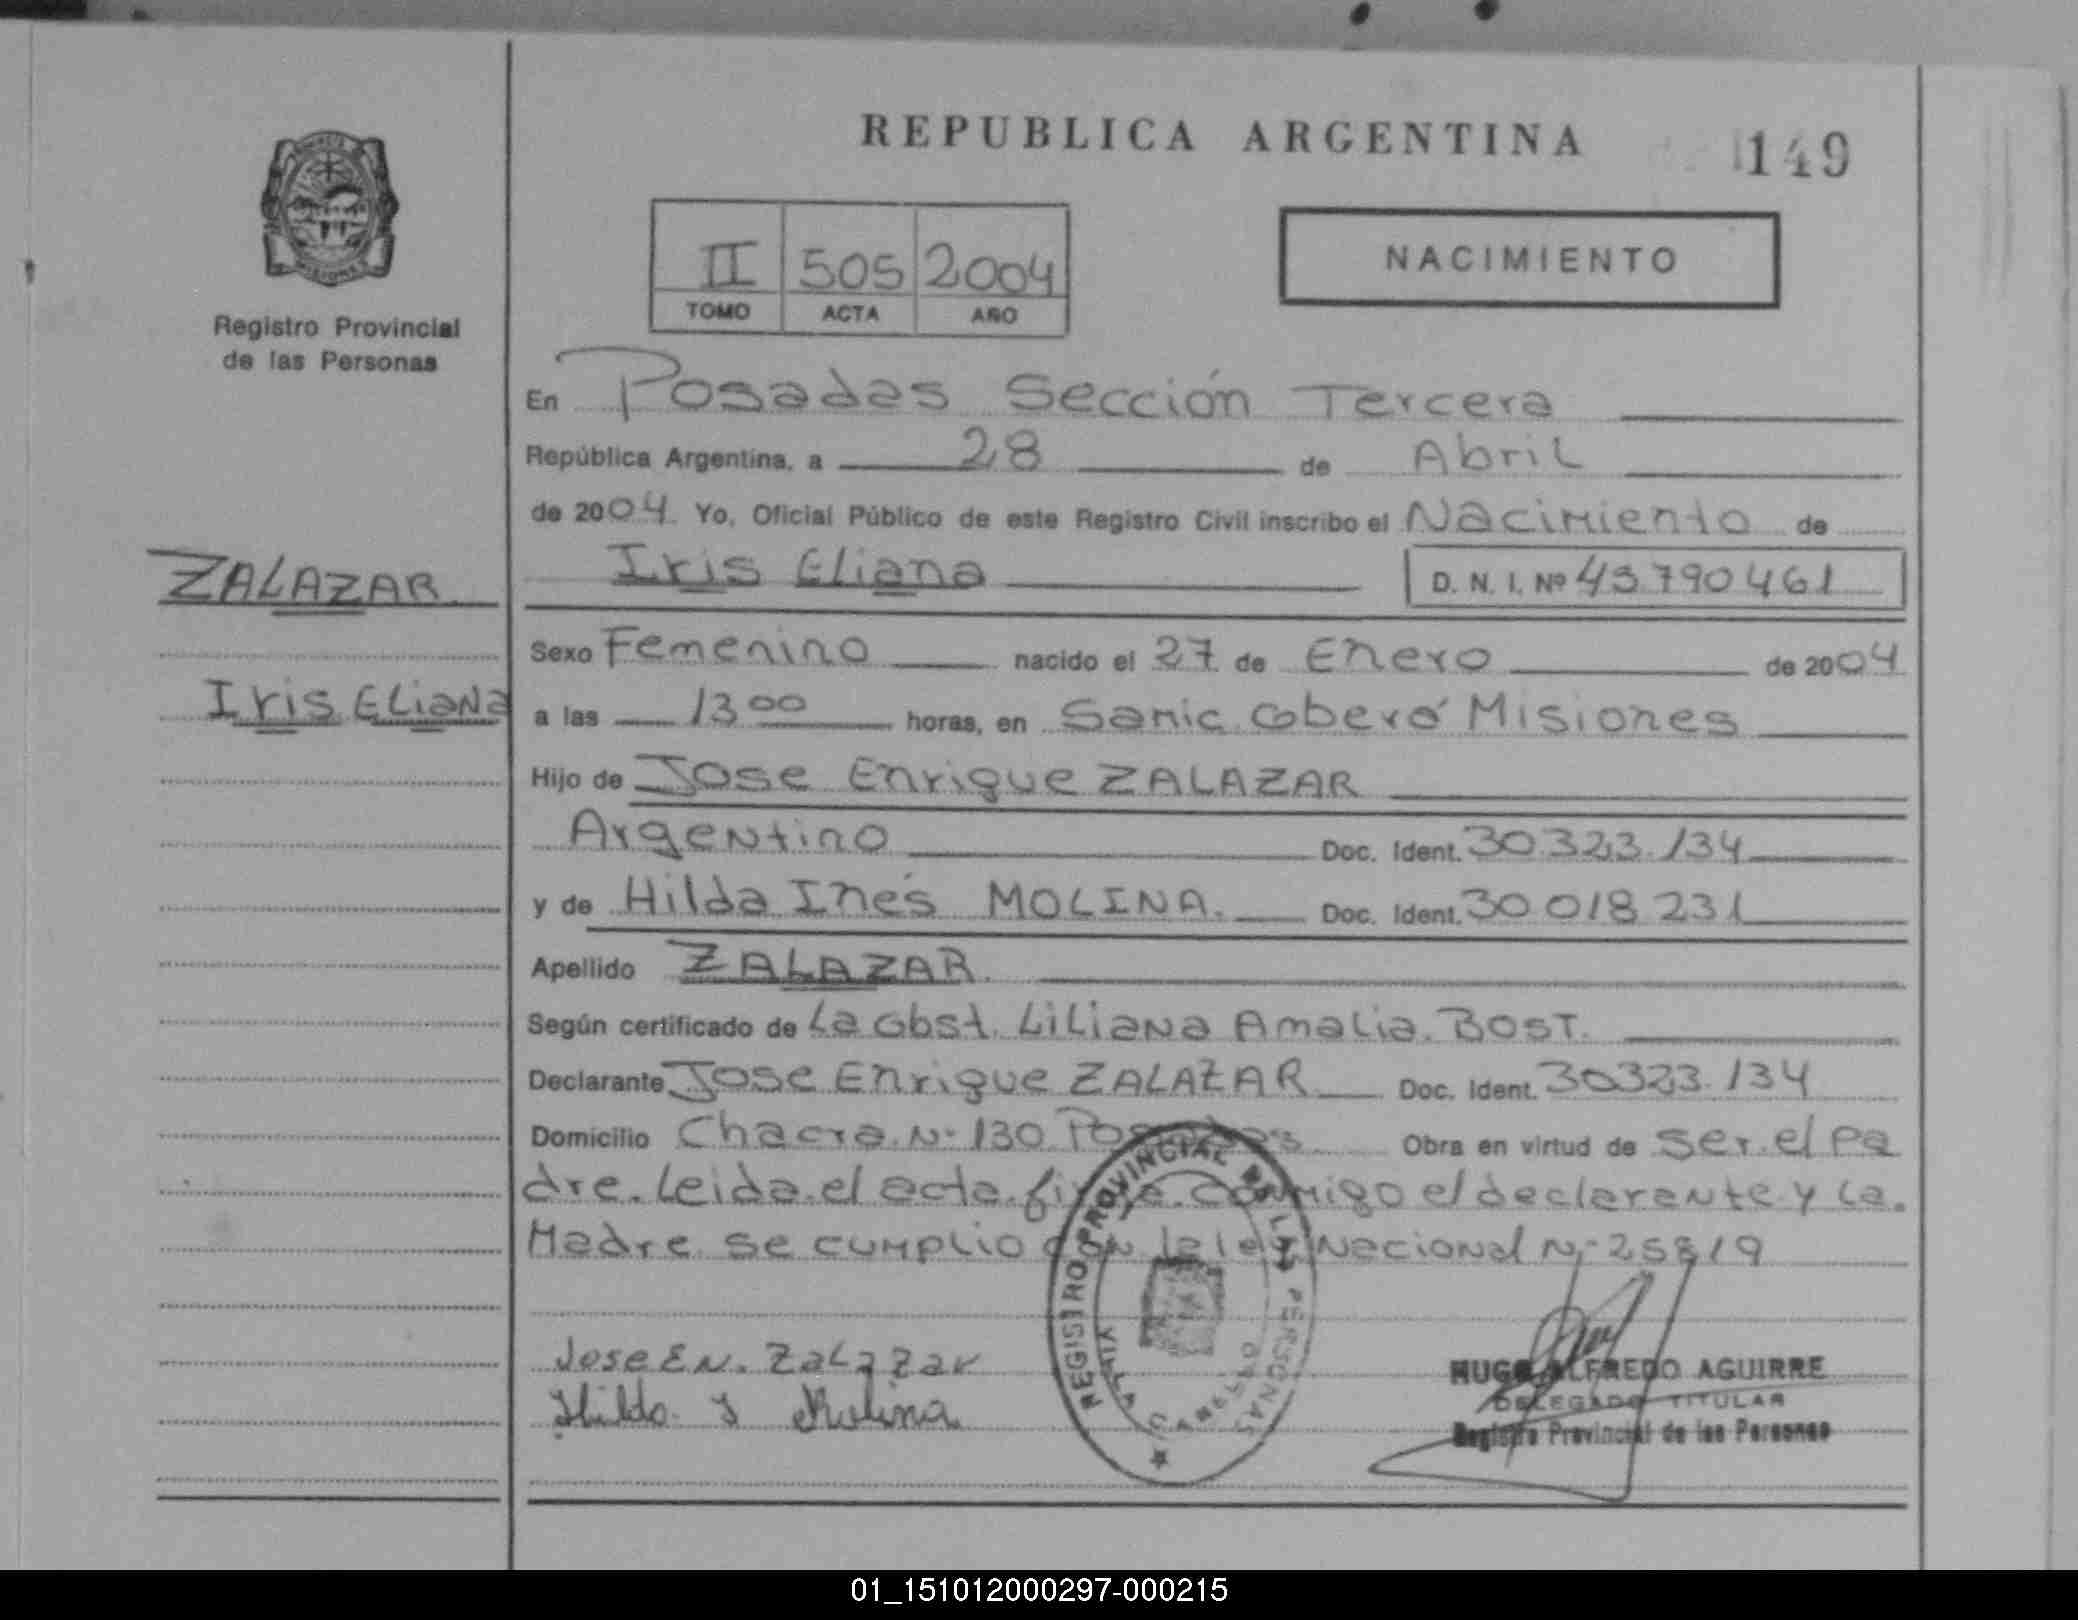 REPUBLICA ARGENTINA
149
MISIONES
Registro Provincial
de las Personas
II 505 2004
TOMO ACTA AÑO
NACIMIENTO
En Posadas Sección Tercera
República Argentina, a 28 de Abril
de 2004 Yo, Oficial Público de este Registro Civil inscribo el Nacimiento de
Iris Eliana D. N. I. Nº 45790461
ZALAZAR
Iris Eliana
Sexo Femenino nacido el 27 de Enero de 2004
a las 13 00 horas, en Sanic. Misiones
Hijo de Jose Enrique ZALAZAR
Argentino Doc. Ident. 30.323.134
y de Hilda Inés MOLINA. Doc. Ident. 30 018 231
Apellido ZALAZAR.
Según certificado de La Obst. Liliana Amalia. BOST.
Declarante Jose Enrique ZALAZAR Doc. Ident. 30323.134
Domicilio Chacra N. 130 Posadas Obra en virtud de ser. el Pa
dre. Leida el acta. firma. conmigo el declarante y la.
Madre se cumplio con la ley Nacional N. 25819
Jose En. Zalazar
Hilda I Molina
REGISTRO PROVINCIAL DE LAS PERSONAS
HUGO ALFREDO AGUIRRE
DELEGADO TITULAR
Registro Provincial de las Personas
01_151012000297-000215